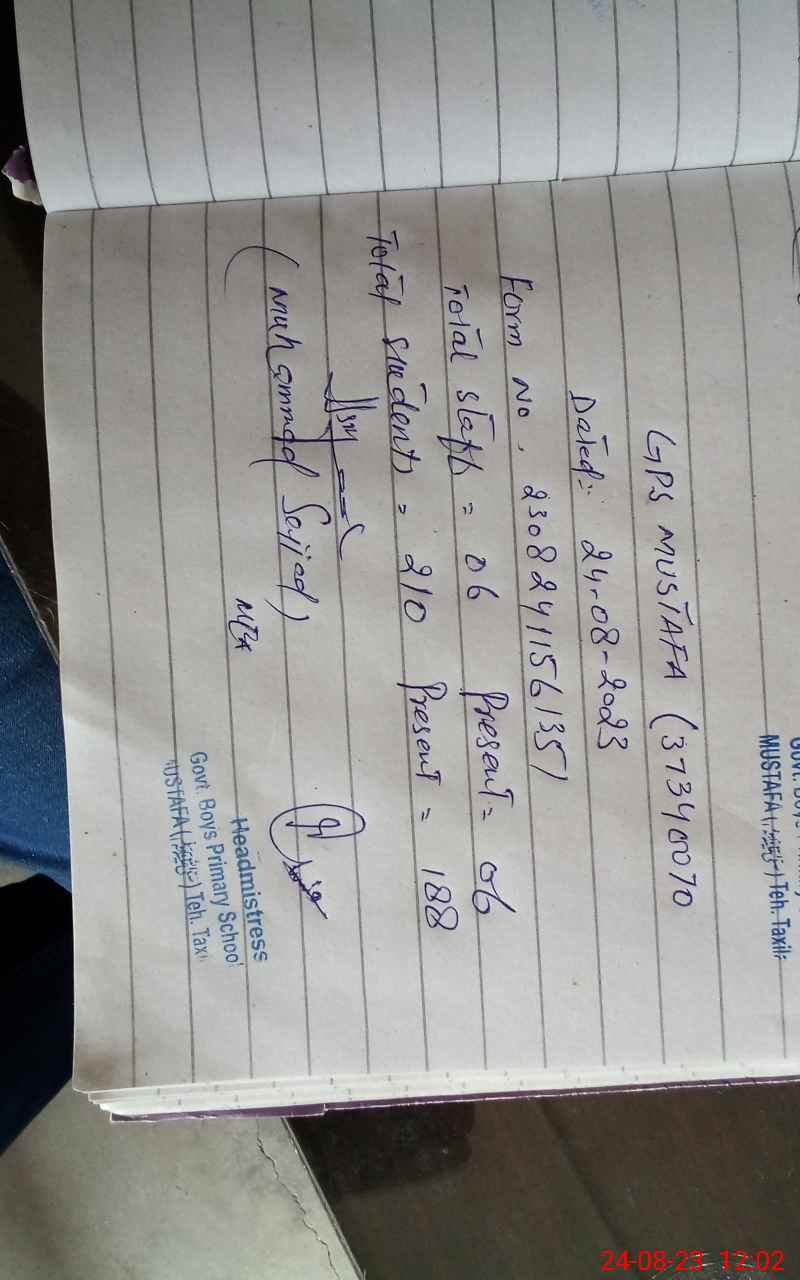 GPS MUSTAFA (37340070
Dated:- 24-08-2023
Form No. 2308241156135)
Total staff = 06 Present = 06
Total students = 210 Present = 188
(Muhammad Sajjad)
MEA
Headmistress
Govt. Boys Primary School
MUSTAFA ( ) Teh. Taxi
MUSTAFA ( ) Teh. Taxil
24-08-23 12:02